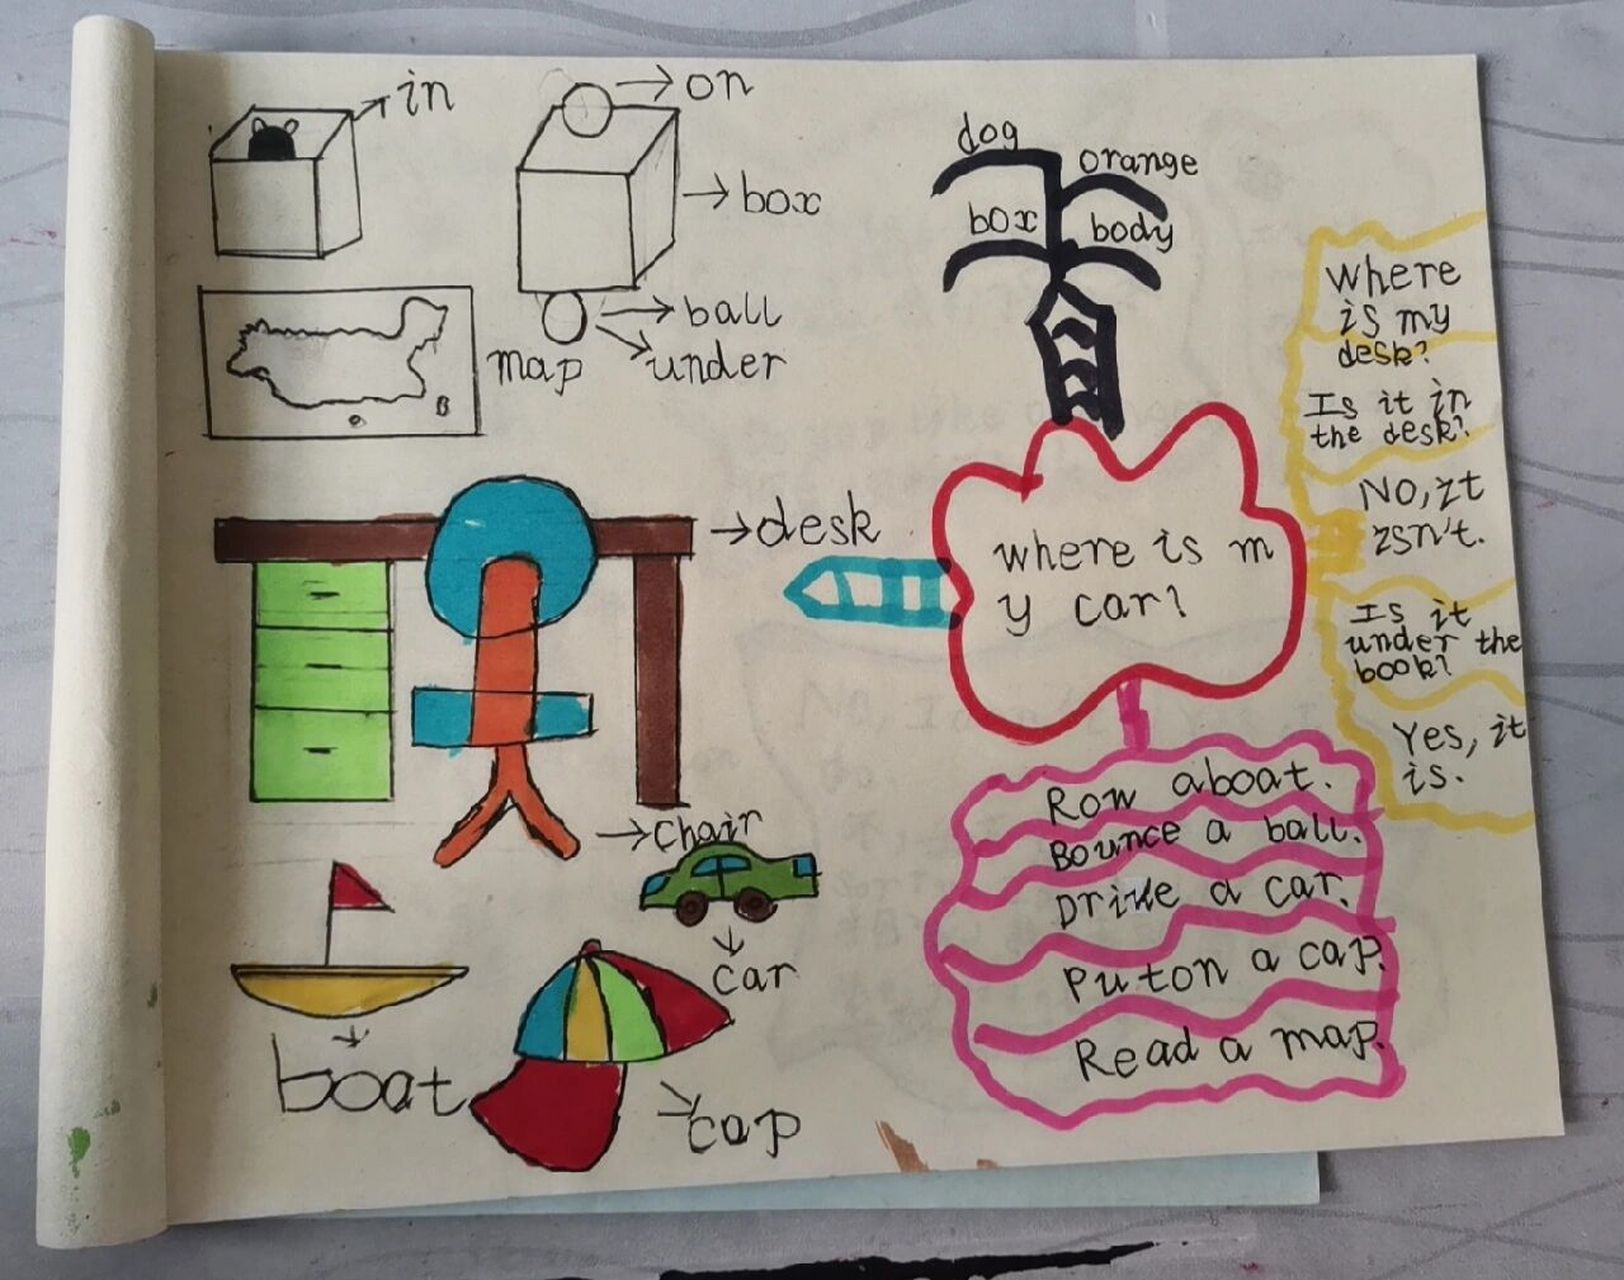 in
on
box
ball
under
map
desk
chair
car
boat
cap
dog
orange
box
body
where is m
y car?
where
is my
desk?
Is it in
the desk?
No, it
isn't.
Is it
under the
book?
Yes, it
is.
Row aboat.
Bounce a ball.
Drive a car.
Puton a cap.
Read a map.